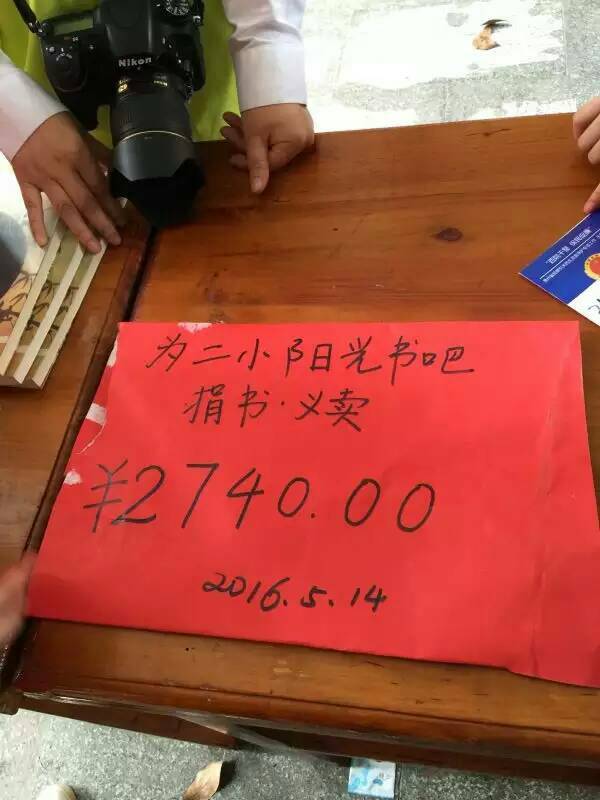 Nikon
为二小阳光书吧
捐书·义卖
¥2740.00
2016.5.14